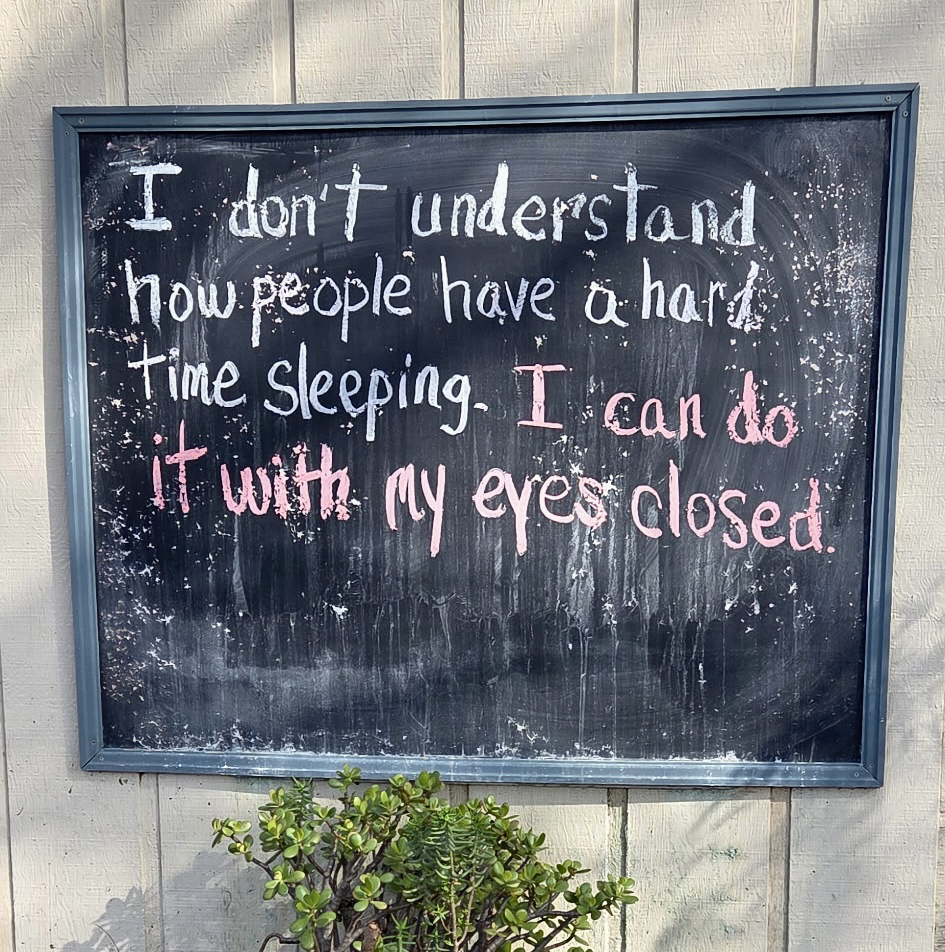 I don't understand
how people have a hard
time sleeping. I can do
it with my eyes closed.